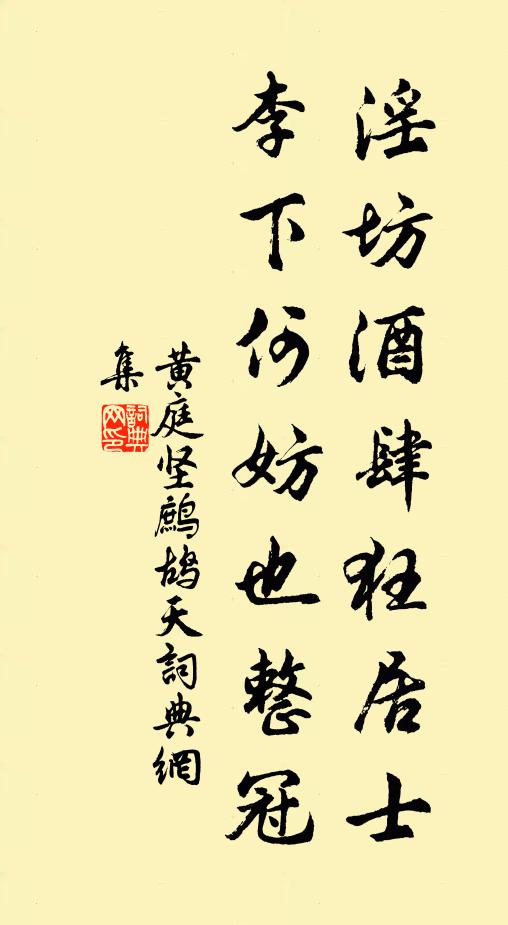 淫坊酒肆狂居士
李下何妨也整冠
黄庭坚鹧鸪天詞典網
集
詞典
网印